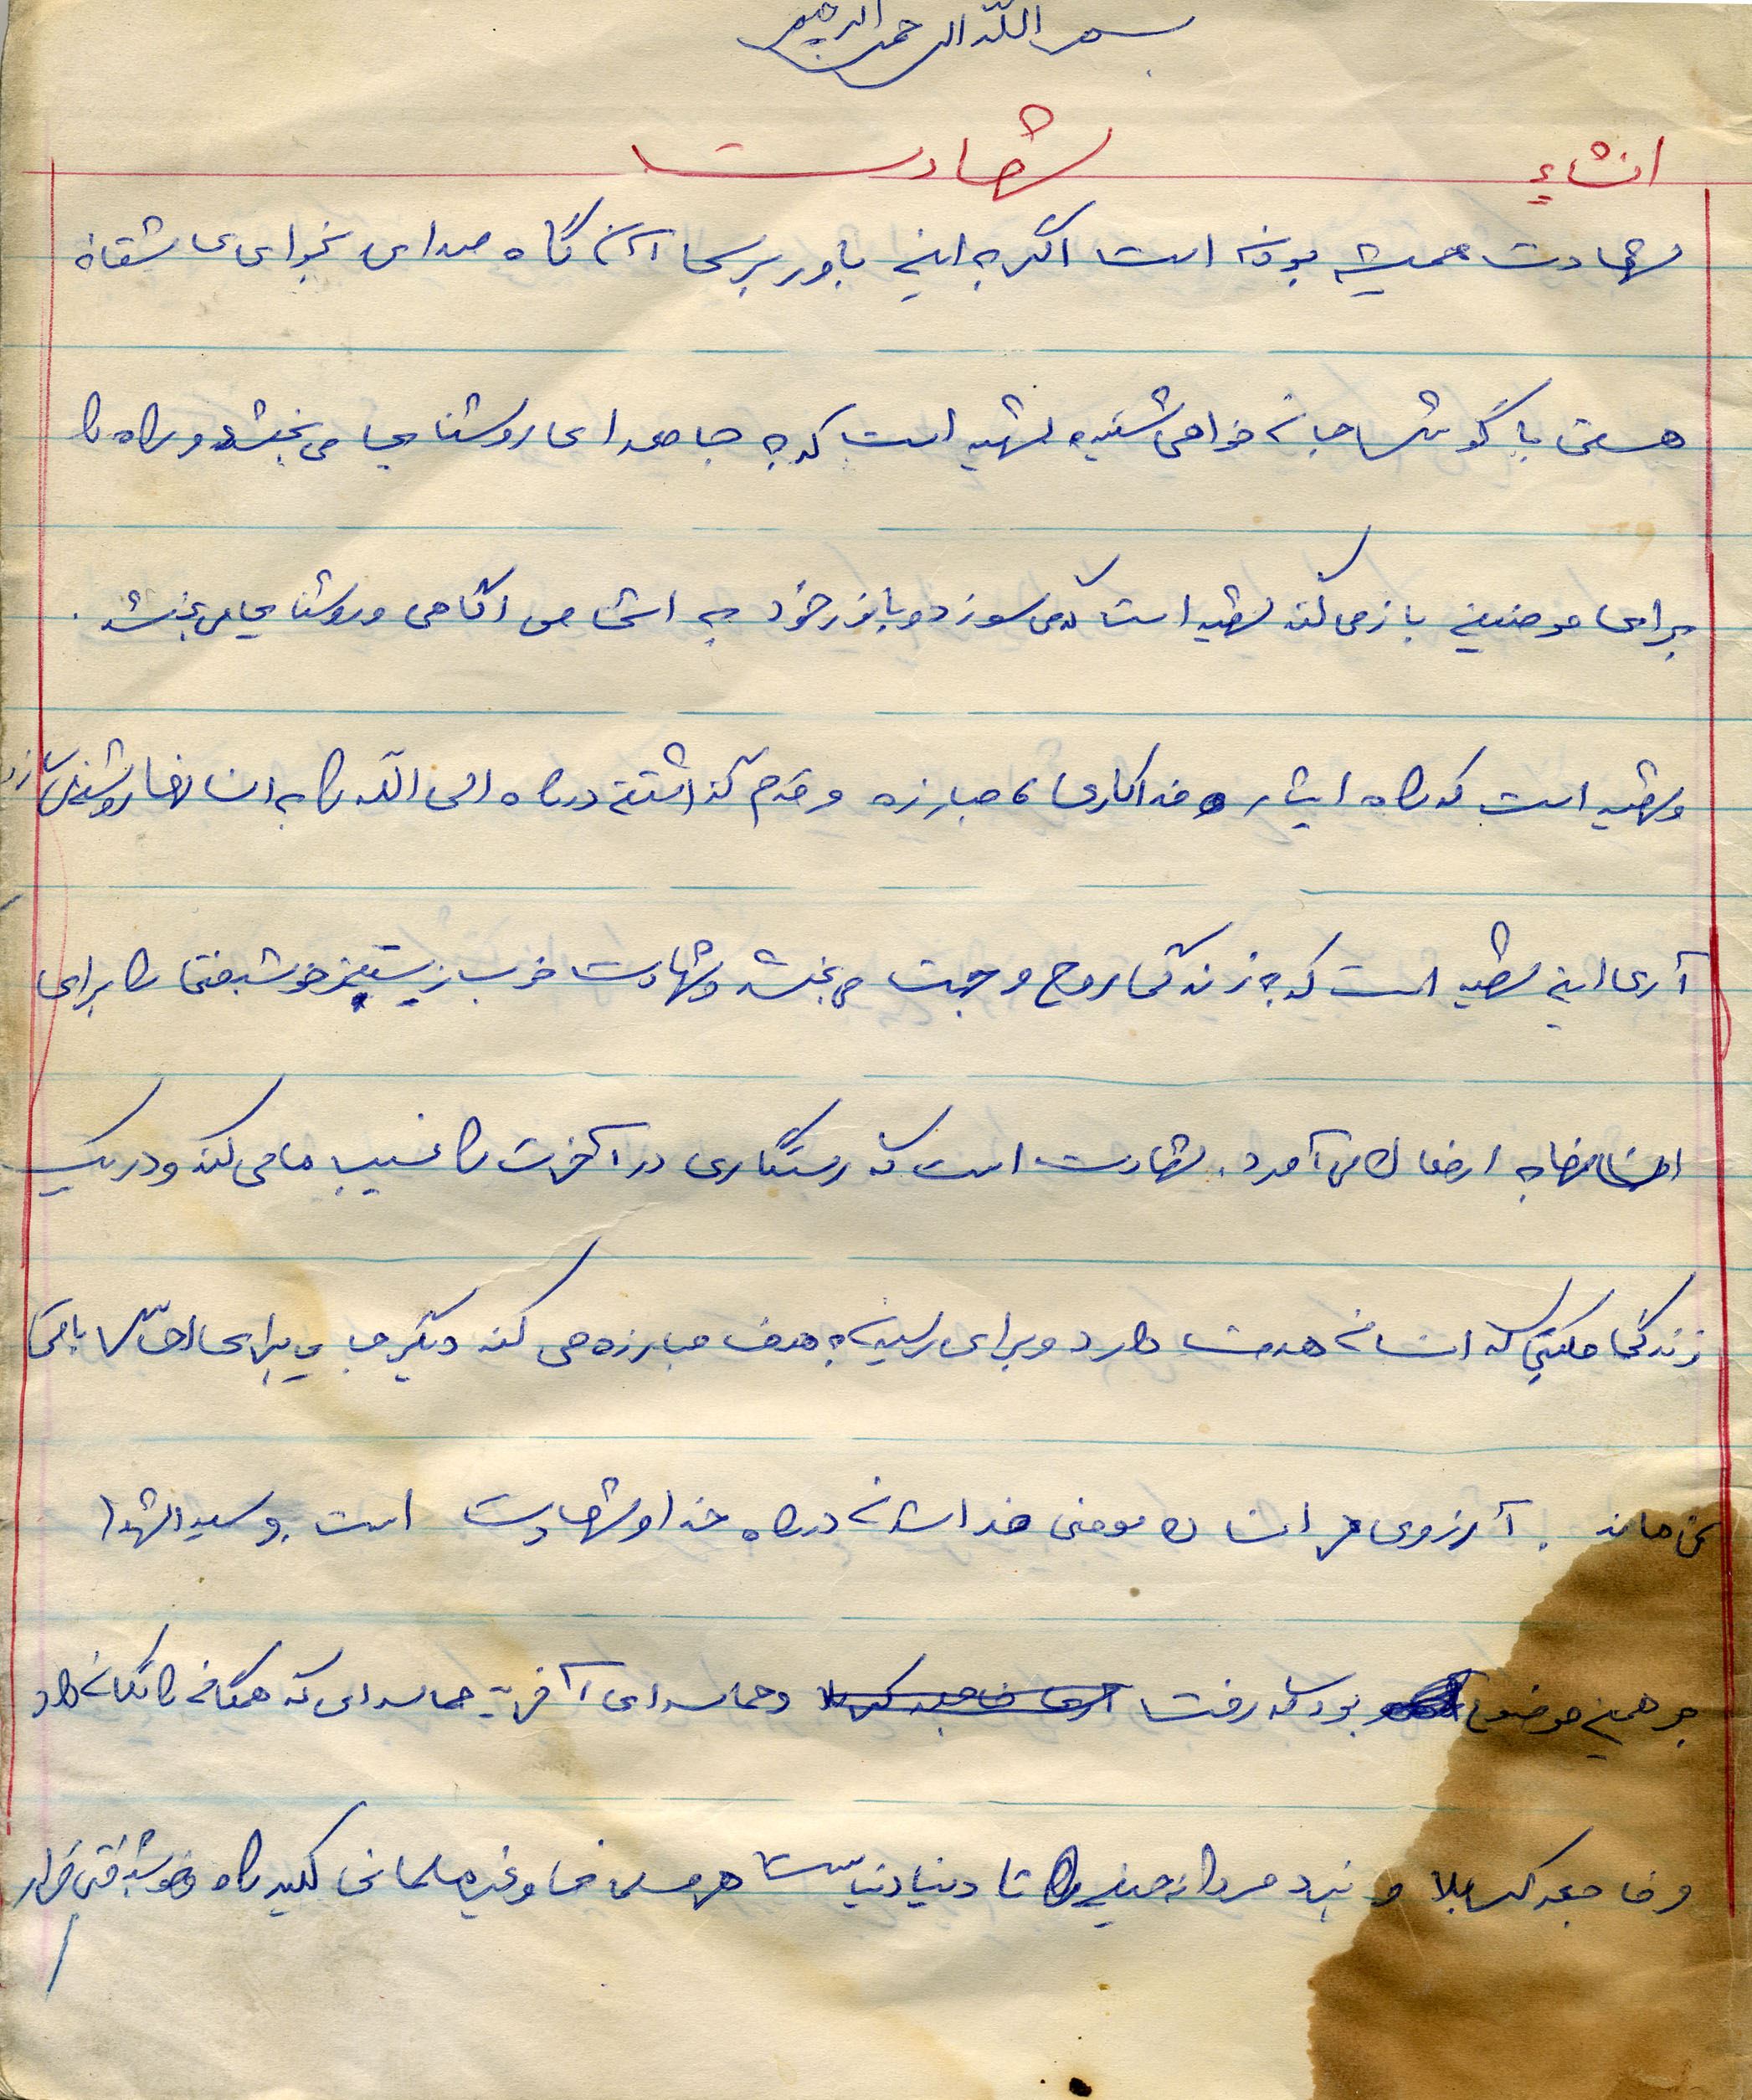 بسم الله الرحمن الرحیم
انشاء شهادت
شهادت همیشه بودن است اگر به این باور برسی آن گاه صدای نجوای عاشقانه
هستی با گوش جان خواهی شنید شهید است که به جامعه ای روشنایی می بخشد و راه را
برای مومنین باز می کند شهید است که می سوزد و با نور خود به اشخاص آگاهی و روشنایی می بخشد .
و شهید است که راه ایثار و فداکاری ، مبارزه و قدم گذاشتن در راه الی الله را به انسانها روشن می سازد
آری این شهید است که به زندگی روح و جهت می بخشد و شهادت خوب زیستن خوشبختی را برای
انسانها به ارمغان می آورد . شهادت است که رستگاری در آخرت را نسیب ما می کند و در یک
زندگی مکتبی که انسان هدف دارد و برای رسیدن به هدف مبارزه می کند دیگر جایی برای باقی
نمی ماند . آرزوی هر انسان مومنی فدا شدن در راه خدا و شهادت است . و سید الشهدا
بر همین موضوع بود که رفت و حماسه ای آفرید حماسه ای که همگان را تکان داد
و فاجعه کربلا و نبرد مردانه حسین را تا دنیا دنیاست هر مسلمان و غیر مسلمانی کلید راه خوشبختی قرار